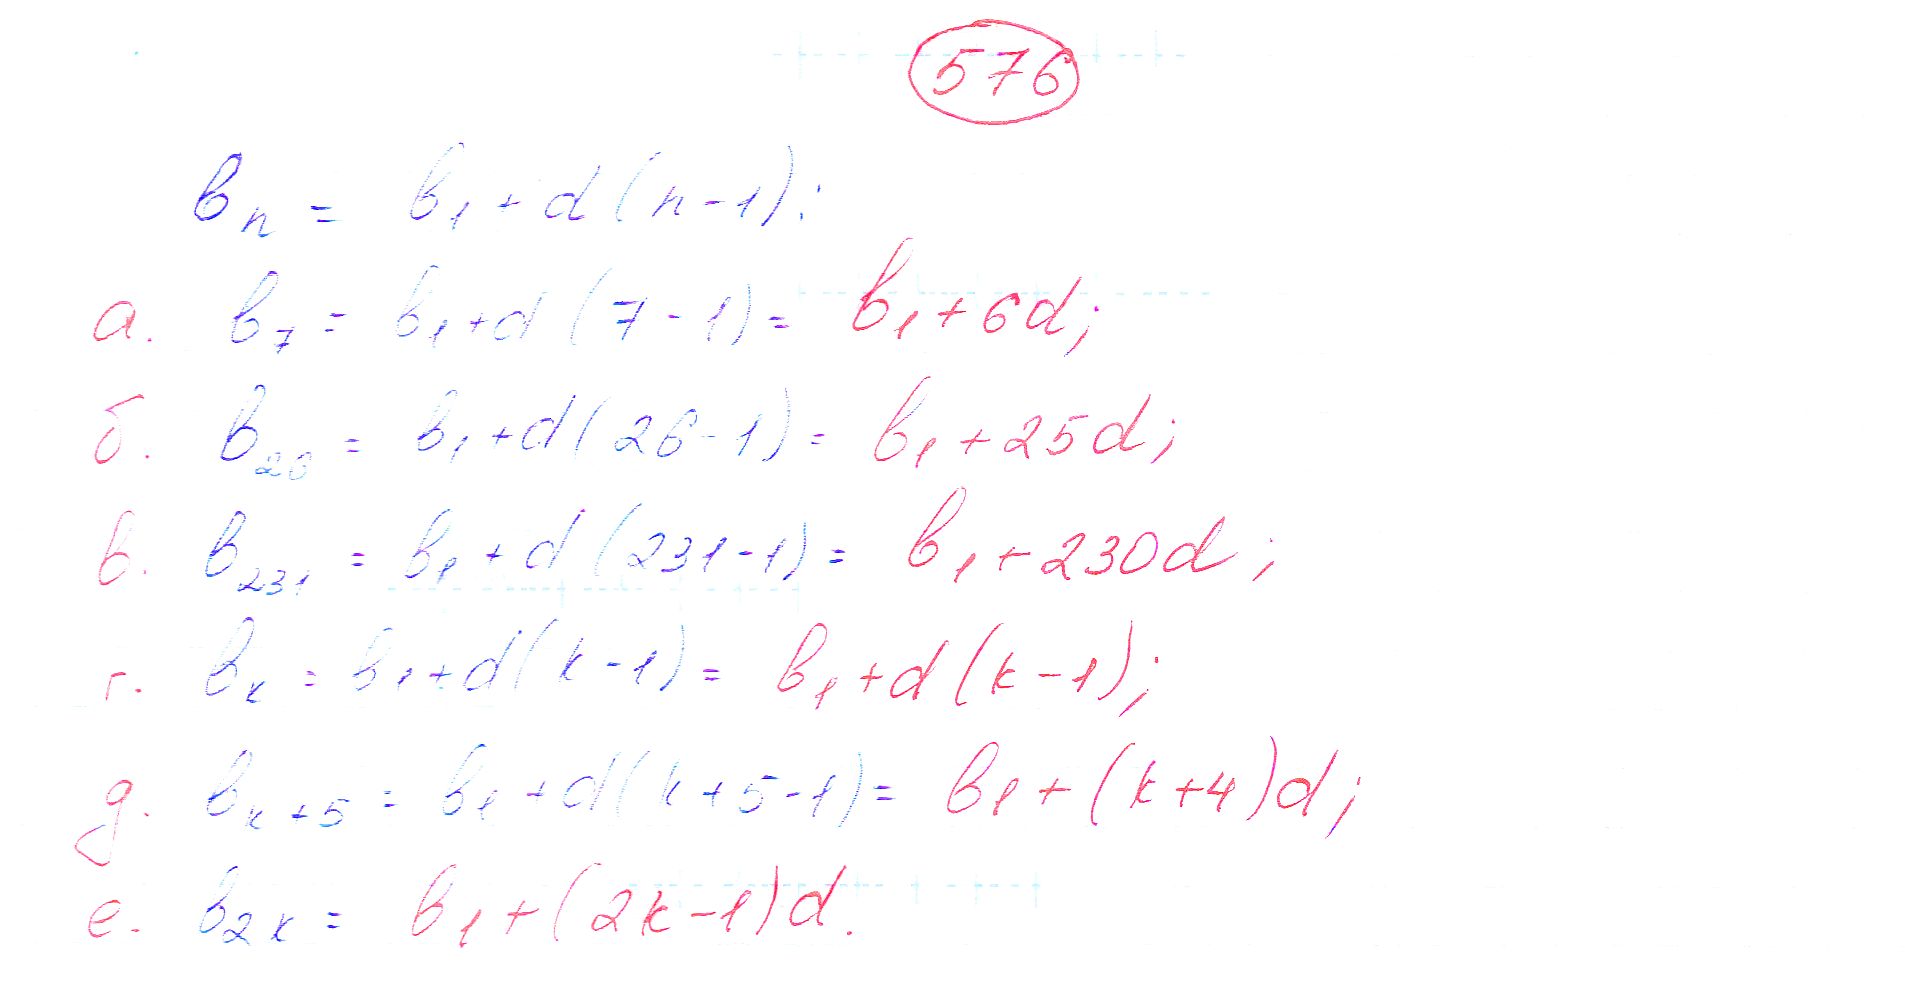 576
bₙ = b₁ + d(n-1):
а. b₇ = b₁ + d(7-1) = b₁ + 6d;
б. b₂₆ = b₁ + d(26-1) = b₁ + 25d;
в. b₂₃₁ = b₁ + d(231-1) = b₁ + 230d;
г. bₖ = b₁ + d(k-1) = b₁ + d(k-1);
д. bₖ₊₅ = b₁ + d(k+5-1) = b₁ + (k+4)d;
е. b₂ₖ = b₁ + (2k-1)d.